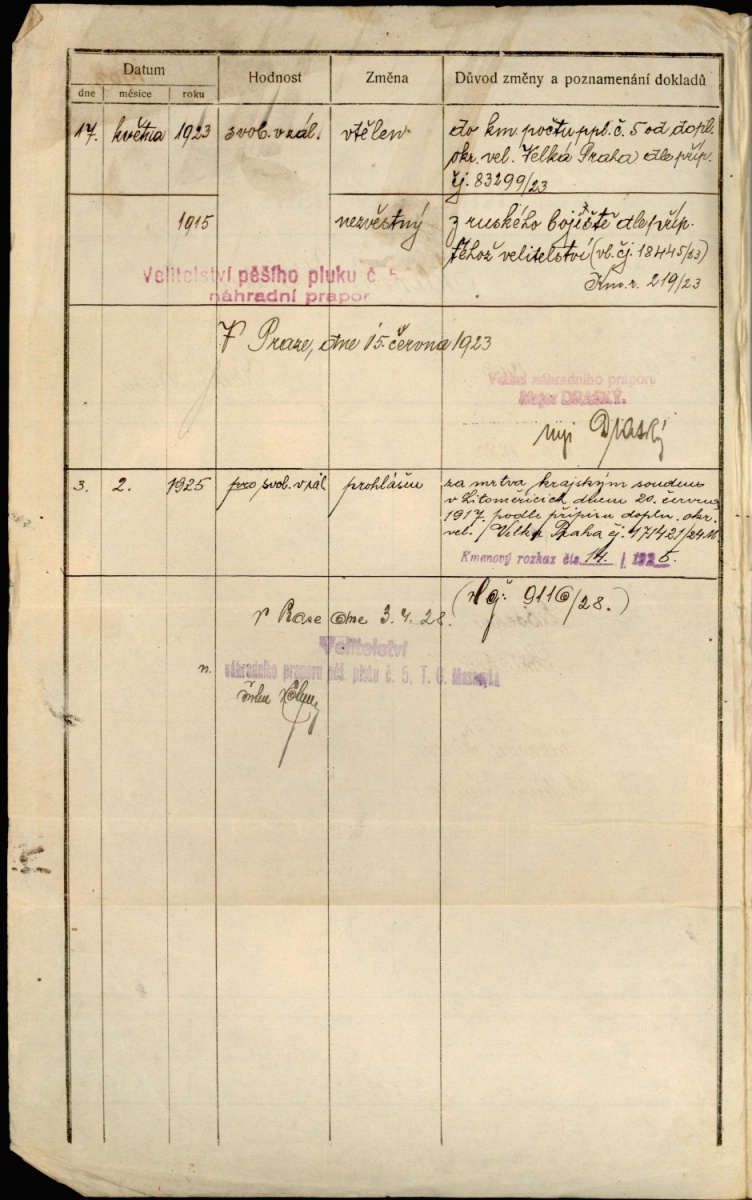 Datum
Hodnost
Změna
Důvod změny a poznamenání dokladů
dne
měsíce
roku
17. května 1923 svob. v zál. vtělen do km. počtu ppl. č. 5 od dopl.
okr. vel. Velká Praha dle příp.
čj. 83299/23
1915 nezvěstný z ruského bojiště dle příp.
téhož velitelství (vl. čj. 18445/23)
Km. r. 219/23
Velitelství pěšího pluku č. 5
náhradní prapor
V Praze, dne 15. června 1923
Velitel náhradního praporu
Major DRASKÝ.
mjr
3. 2. 1925 svob. v zál prohlášen za mrtva krajským soudem
v Litoměřicích dnem 20. června
1917 podle přípisu doplň. okr.
vel. Velká Praha čj. 171421/24
Kmenový rozkaz čís 14. / 1925.
V Praze dne 3. 4. 28. (vl čj: 9116/28.)
Velitelství
náhradního praporu pěš. pluku č. 5, T. G. Masaryka